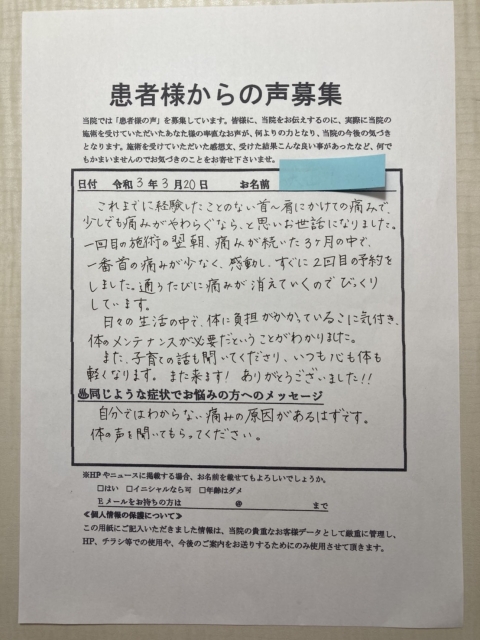 患者様からの声募集
当院では「患者様の声」を募集しています。皆様に、当院をお伝えするのに、実際に当院の
施術を受けていただいたあなた様の率直なお声が、何よりの力となり、当院の今後の気づき
となります。施術を受けていただいた感想文、受けた結果こんな良い事があったなど、何で
もかまいませんのでお気づきのことをお寄せ下さいませ。
日付 令和3年3月20日 お名前
これまでに経験したことのない首〜肩にかけての痛みで、
少しでも痛みがやわらぐなら、と思いお世話になりました。
一回目の施術の翌朝、痛みが続いた3ヶ月の中で、
一番首の痛みが少なく、感動し、すぐに2回目の予約を
しました。通うたびに痛みが消えていくのでびっくり
しています。
日々の生活の中で、体に負担がかかっているこに気付き、
体のメンテナンスが必要だということがわかりました。
また、子育ての話も聞いてくださり、いつも心も体も
軽くなります。また来ます! ありがとうございました!!
♨同じような症状でお悩みの方へのメッセージ
自分ではわからない痛みの原因があるはずです。
体の声を聞いてもらってください。
※HPやニュースに掲載する場合、お名前を載せてもよろしいでしょうか。
□はい □イニシャルなら可 □年齢はダメ
Eメールをお持ちの方は @ まで
≪個人情報の保護について≫
この用紙にご記入いただきました情報は、当院の貴重なお客様データとして厳重に管理し、
HP、チラシ等での使用や、今後のご案内をお送りするためにのみ使用させて頂きます。